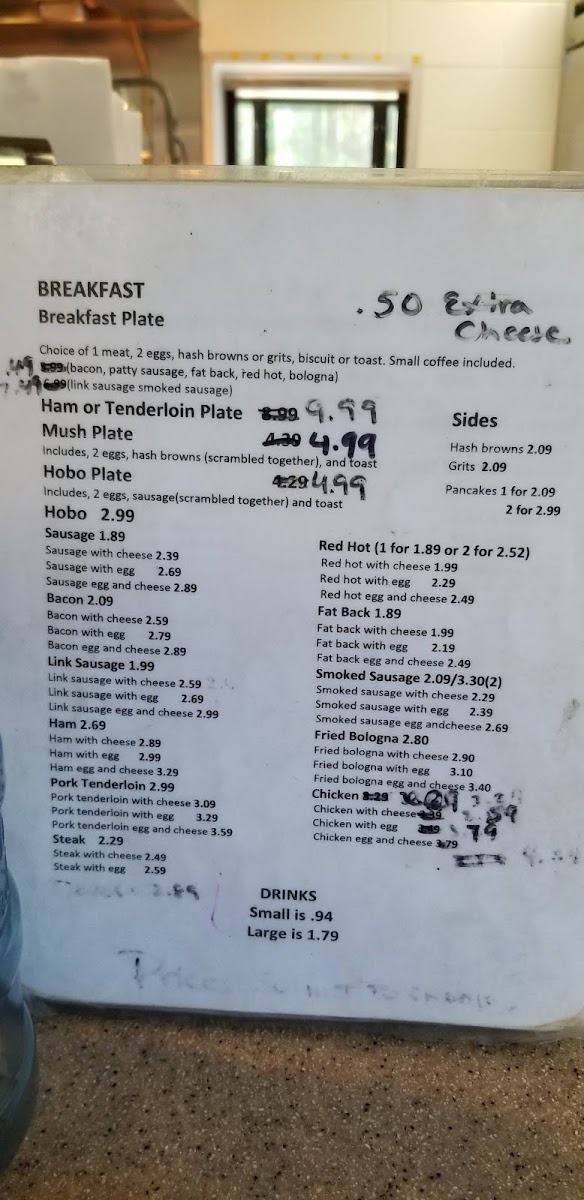 BREAKFAST
.50 Extra Cheese.
Breakfast Plate
Choice of 1 meat, 2 eggs, hash browns or grits, biscuit or toast. Small coffee included.
(bacon, patty sausage, fat back, red hot, bologna)
(link sausage smoked sausage)
Ham or Tenderloin Plate 8.99 9.99
Mush Plate 4.39 4.99
Includes, 2 eggs, hash browns (scrambled together), and toast
Hobo Plate 4.29 4.99
Includes, 2 eggs, sausage(scrambled together) and toast
Hobo 2.99
Sides
Hash browns 2.09
Grits 2.09
Pancakes 1 for 2.09
2 for 2.99
Sausage 1.89
Sausage with cheese 2.39
Sausage with egg 2.69
Sausage egg and cheese 2.89
Bacon 2.09
Bacon with cheese 2.59
Bacon with egg 2.79
Bacon egg and cheese 2.89
Link Sausage 1.99
Link sausage with cheese 2.59
Link sausage with egg 2.69
Link sausage egg and cheese 2.99
Ham 2.69
Ham with cheese 2.89
Ham with egg 2.99
Ham egg and cheese 3.29
Pork Tenderloin 2.99
Pork tenderloin with cheese 3.09
Pork tenderloin with egg 3.29
Pork tenderloin egg and cheese 3.59
Steak 2.29
Steak with cheese 2.49
Steak with egg 2.59
2.89
Red Hot (1 for 1.89 or 2 for 2.52)
Red hot with cheese 1.99
Red hot with egg 2.29
Red hot egg and cheese 2.49
Fat Back 1.89
Fat back with cheese 1.99
Fat back with egg 2.19
Fat back egg and cheese 2.49
Smoked Sausage 2.09/3.30(2)
Smoked sausage with cheese 2.29
Smoked sausage with egg 2.39
Smoked sausage egg andcheese 2.69
Fried Bologna 2.80
Fried bologna with cheese 2.90
Fried bologna with egg 3.10
Fried bologna egg and cheese 3.40
Chicken
Chicken with cheese
Chicken with egg
Chicken egg and cheese 3.79
DRINKS
Small is .94
Large is 1.79